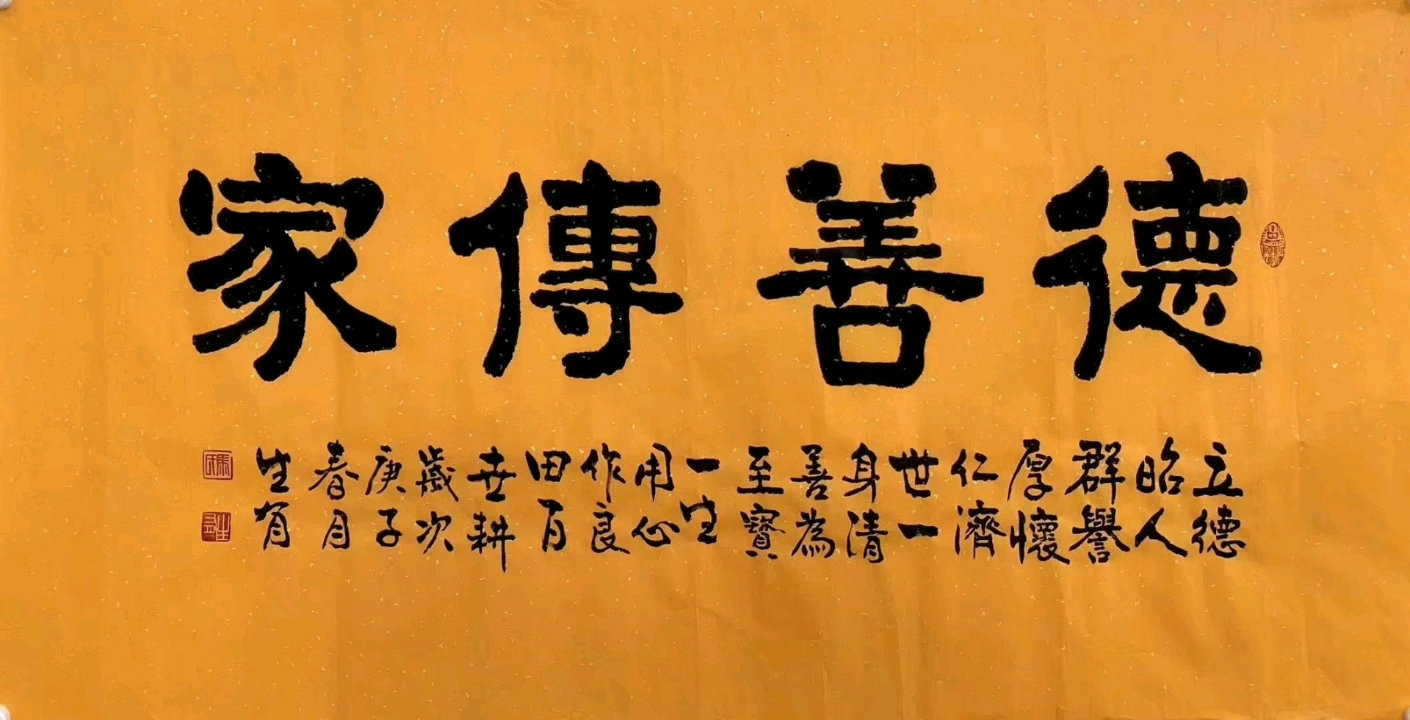 德善傳家
立德
昭人
群譽
厚懷
仁濟
世一
身清
善為
至寶
一生
用心
作良
田百
世耕
歲次
庚子
春月
生有